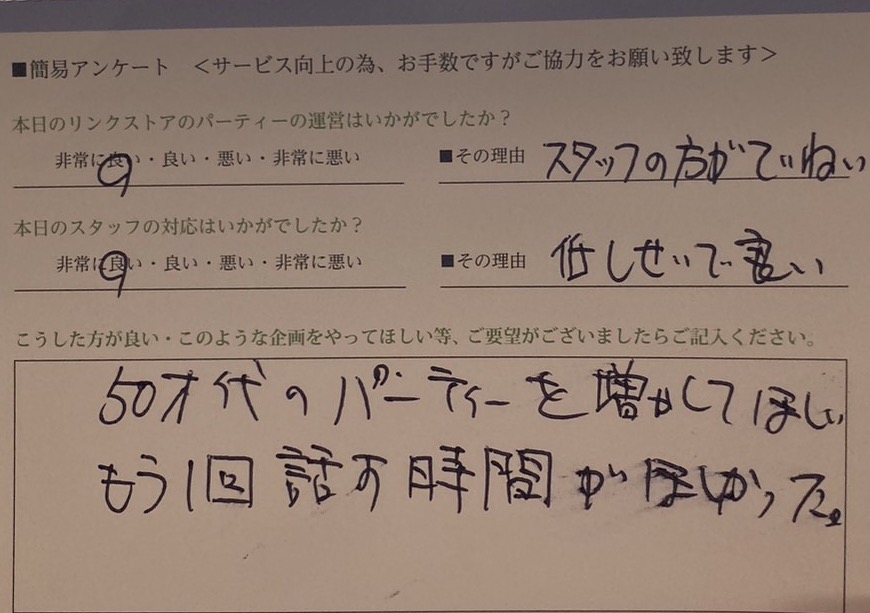 ■簡易アンケート ＜サービス向上の為、お手数ですがご協力をお願い致します＞
本日のリンクストアのパーティーの運営はいかがでしたか？
非常に良い・良い・悪い・非常に悪い ■その理由 スタッフの方がていねい
本日のスタッフの対応はいかがでしたか？
非常に良い・良い・悪い・非常に悪い ■その理由 低しせいで良い
こうした方が良い・このような企画をやってほしい等、ご要望がございましたらご記入ください。
50才代のパーティーを増やしてほしい
もう1回話す時間がほしかった。